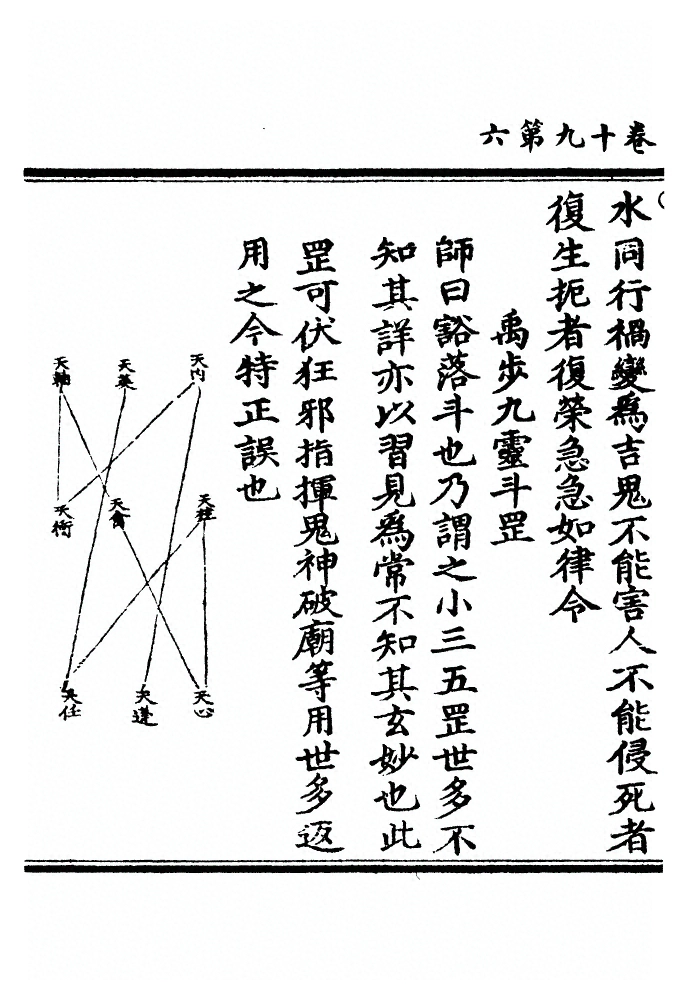 卷十九第六
水同行禍變爲吉鬼不能害人不能侵死者
復生扼者復榮急急如律令
禹步九靈斗罡
師曰豁落斗也乃謂之小三五罡世多不
知其詳亦以習見爲常不知其玄妙也此
罡可伏狂邪指揮鬼神破廟等用世多返
用之今特正誤也
天內
天英
天輔
天柱
天禽
天衝
天心
天蓬
天任